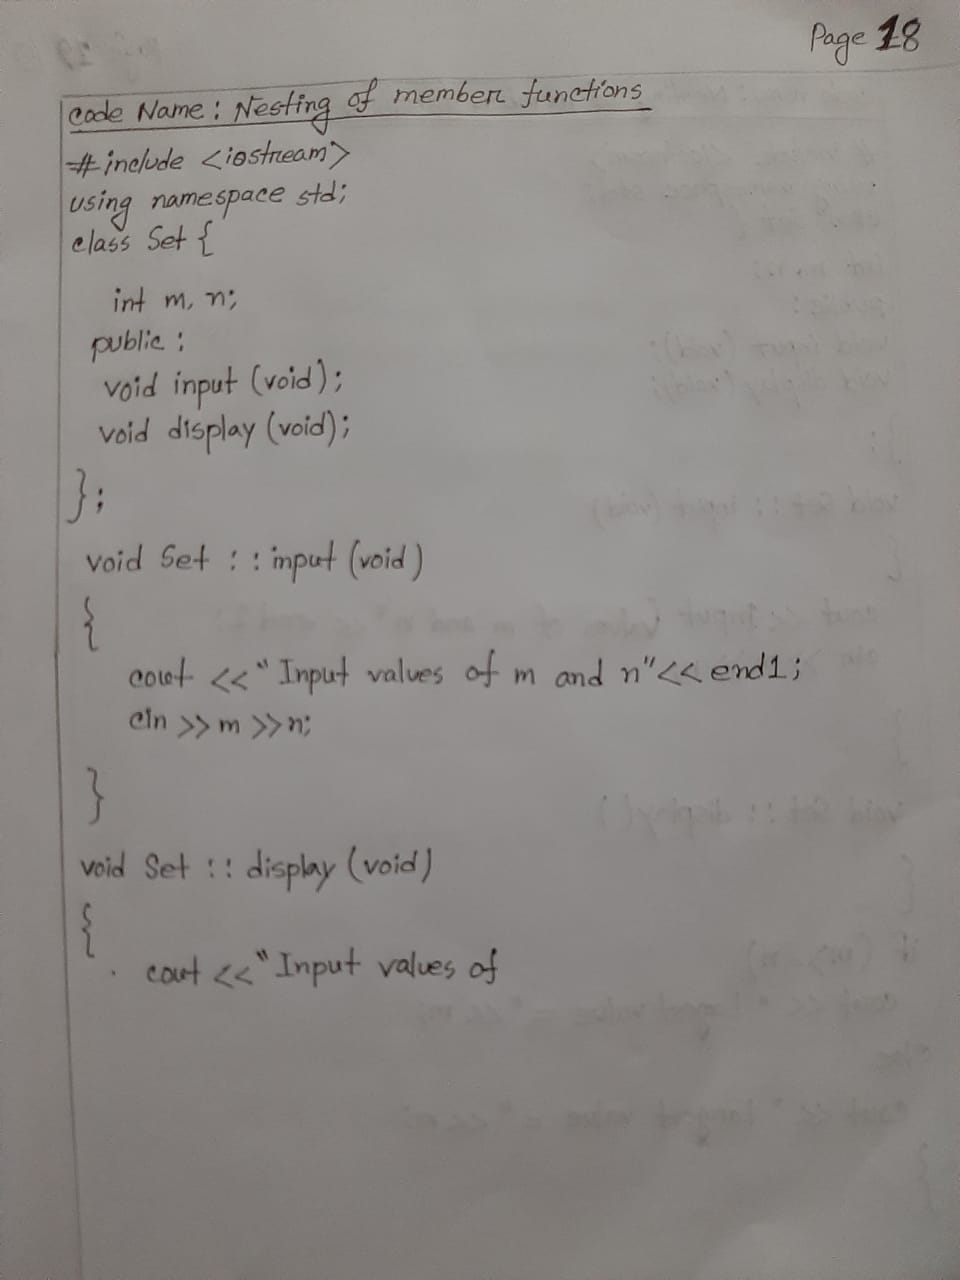 Page 18
Code Name: Nesting of member functions
#include <iostream>
using namespace std;
class Set {
int m, n;
public:
void input (void);
void display (void);
};
void Set :: input (void)
{
cout <<"Input values of m and n"<< end1;
cin >> m >> n;
}
void Set :: display (void)
{
cout <<"Input values of